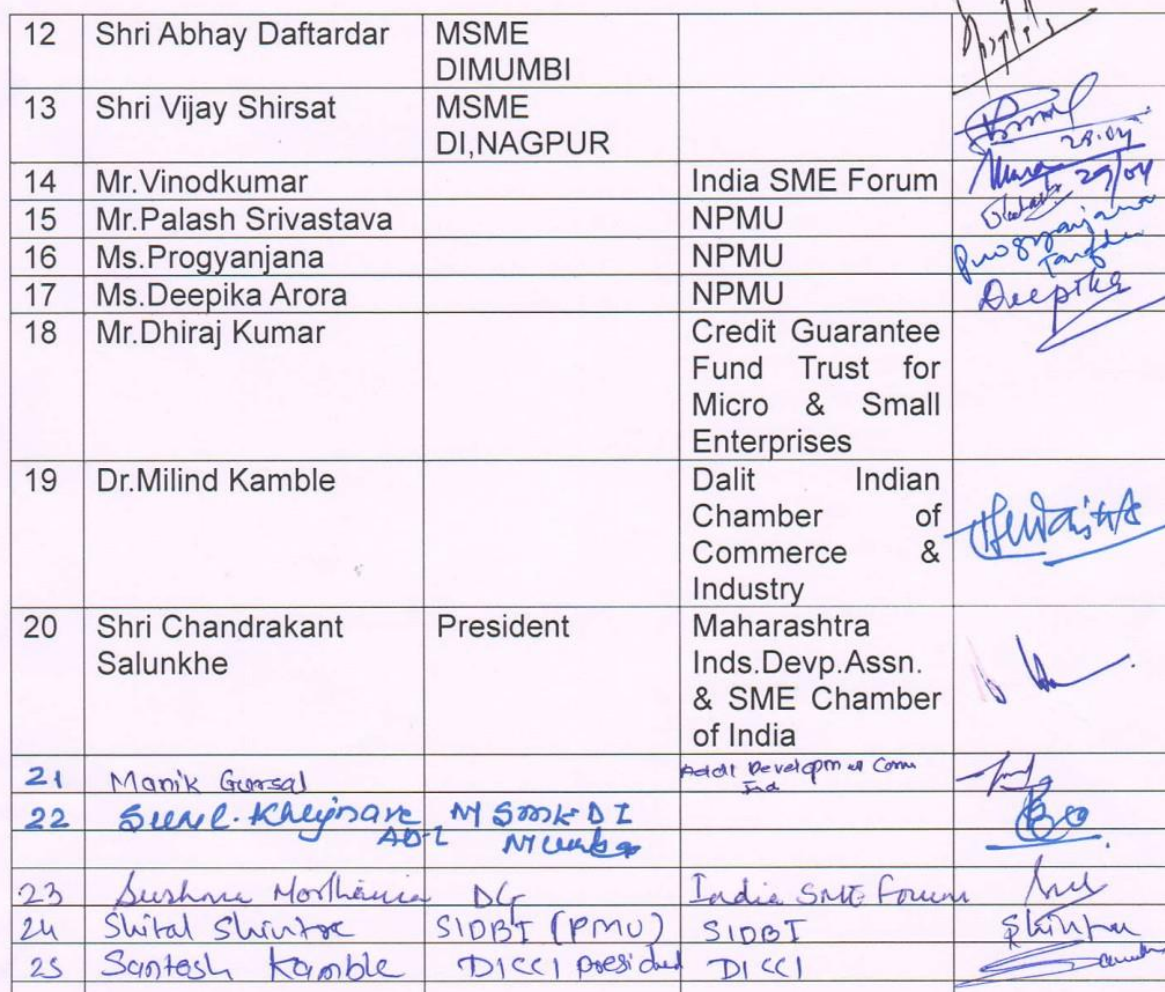 12 Shri Abhay Daftardar MSME
DIMUMBI
13 Shri Vijay Shirsat MSME
DI,NAGPUR
28.04
14 Mr.Vinodkumar India SME Forum 29/04
15 Mr.Palash Srivastava NPMU
16 Ms.Progyanjana NPMU Progyanjana
17 Ms.Deepika Arora NPMU Deepika
18 Mr.Dhiraj Kumar Credit Guarantee
Fund Trust for
Micro & Small
Enterprises
19 Dr.Milind Kamble Dalit Indian
Chamber of
Commerce &
Industry
20 Shri Chandrakant President Maharashtra
Salunkhe Inds.Devp.Assn.
& SME Chamber
of India
21 Manik Gursal Addl Comm
Ind
22 DI
23 DG India SME Forum
24 Shital Shintre SIDBI (PMU) SIDBI Shintre
25 Santosh Kamble DICCI president DICCI